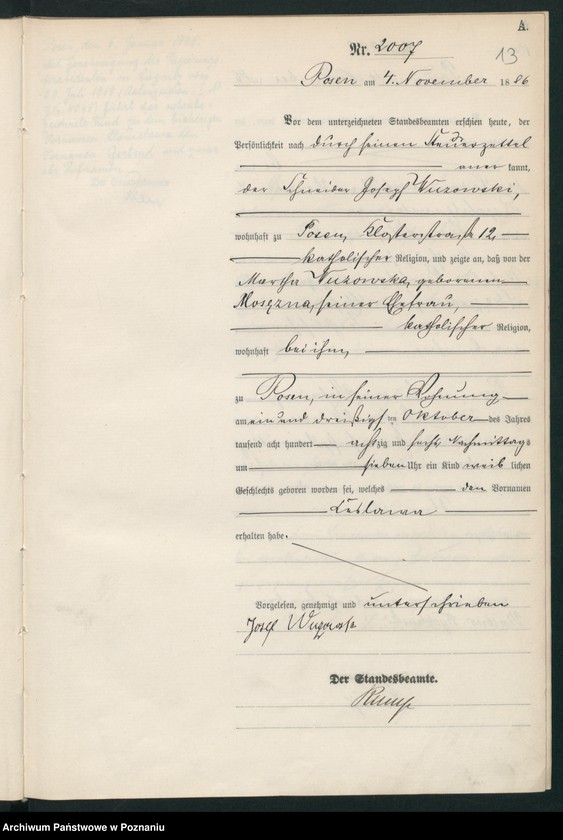 A.
13
Nr. 2007
Posen am 4. November 1886
Vor dem unterzeichneten Standesbeamten erschien heute, der
Persönlichkeit nach durch seinen Steuerzettel
aner kannt,
der Schneider Joseph Wuzowski,
wohnhaft zu Posen, Klosterstraße 12,
katholischer Religion, und zeigte an, daß von der
Martha Wuzowska, geborenen
seiner Ehefrau,
katholischer Religion,
wohnhaft bei ihm,
zu Posen, in seiner Wohnung
am ein und dreißigsten Oktober des Jahres
tausend acht hundert achtzig und sechs Nachmittags
um sieben Uhr ein Kind weib lichen
Geschlechts geboren worden sei, welches den Vornamen
Ceslawa
erhalten habe.
Vorgelesen, genehmigt und unterschrieben
Josef
Der Standesbeamte.
Archiwum Państwowe w Poznaniu